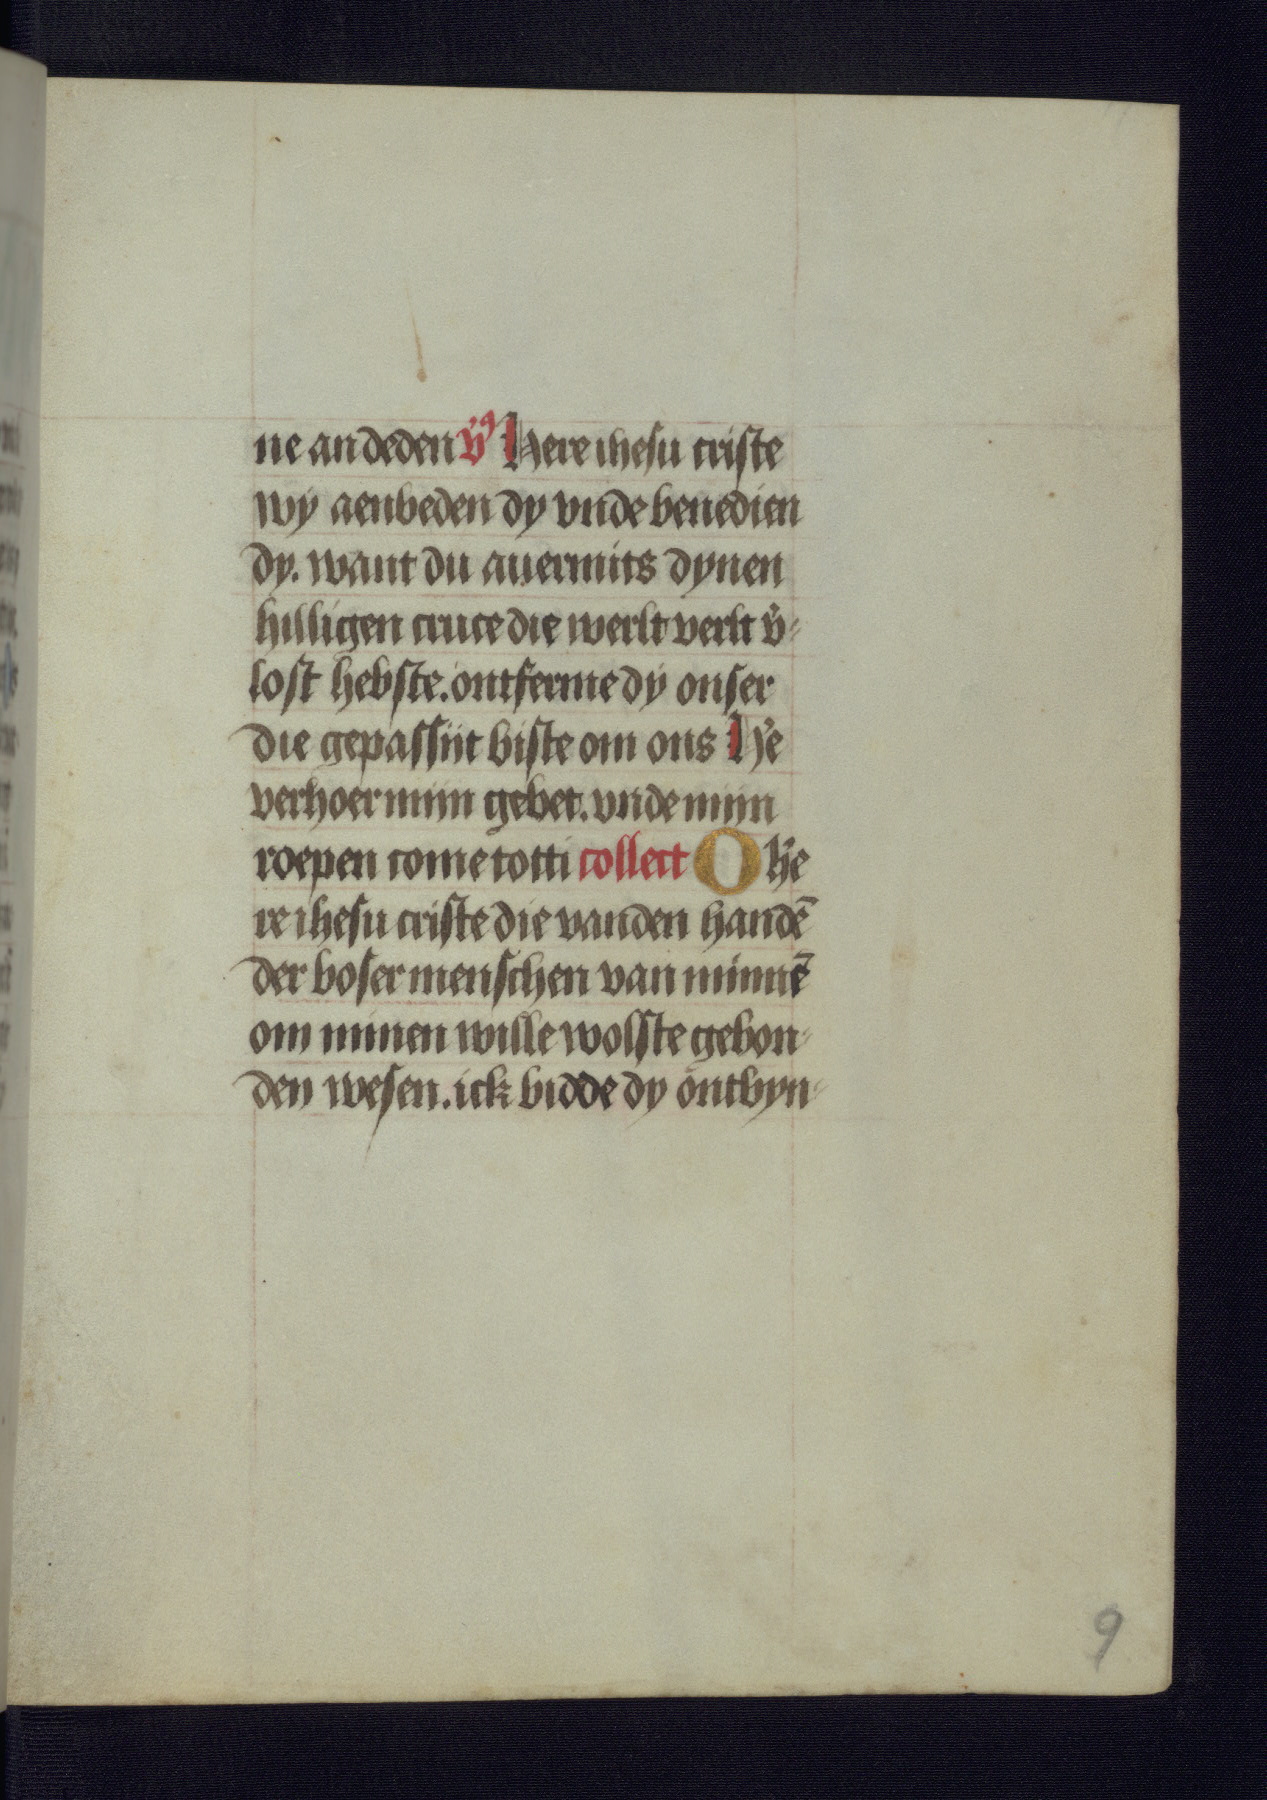 ne an deden v̾ꝰ Here ihesu criste
wy aenbeden dy vnde benedien
dy. want du auermits dynen
hilligen cruce die werlt verlt v̾-
lost hebste. ontferme dy onser
die gepassiit biste om ons He
verhoer mijn gebet. vnde mijn
roepen come totti collect O he
re ihesu criste die vanden handē
der boser menschen van minnē
om minen wille wolste gebon-
den wesen. ick bidde dy ontbyn-
9